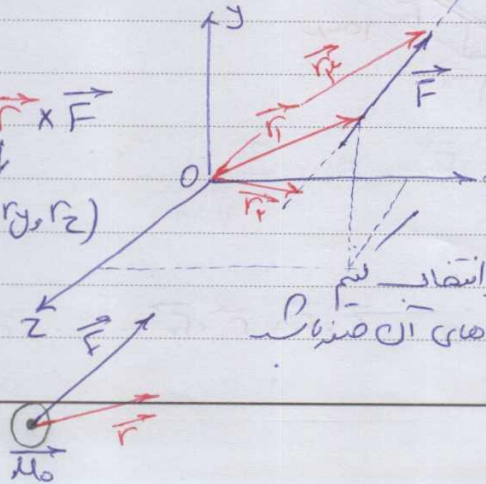 y
r⃗ × F⃗
F⃗
r⃗₃
r⃗₁
O
r⃗₂
ry, rz)
انتخاب کنیم
های آن صفر باشد.
z
F⃗
r⃗
M⃗o